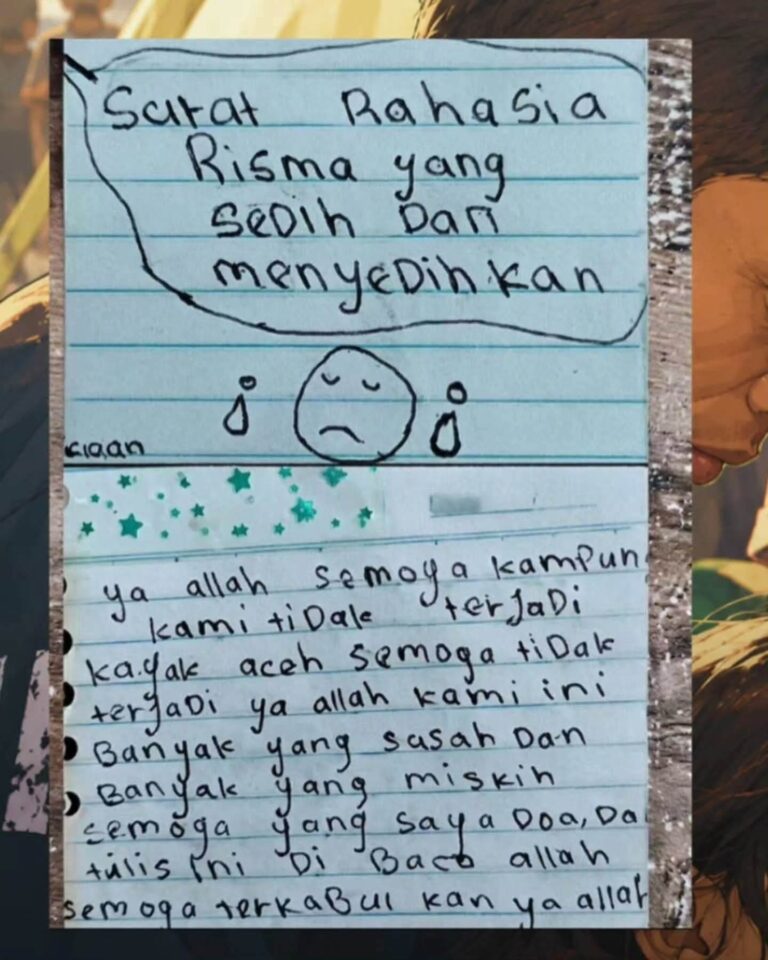 Surat Rahasia
Risma yang
SeDih Dan
menyeDihkan
ciaan
ya allah semoya kampun
kami tiDak terJaDi
kayak aceh semoga tiDak
terJaDi ya allah kami ini
Banyak yang susah Dan
Banyak yang miskin
semoga yang saya Doa, Da
tulis ini Di Baca allah
semoga terkaBul kan ya allah